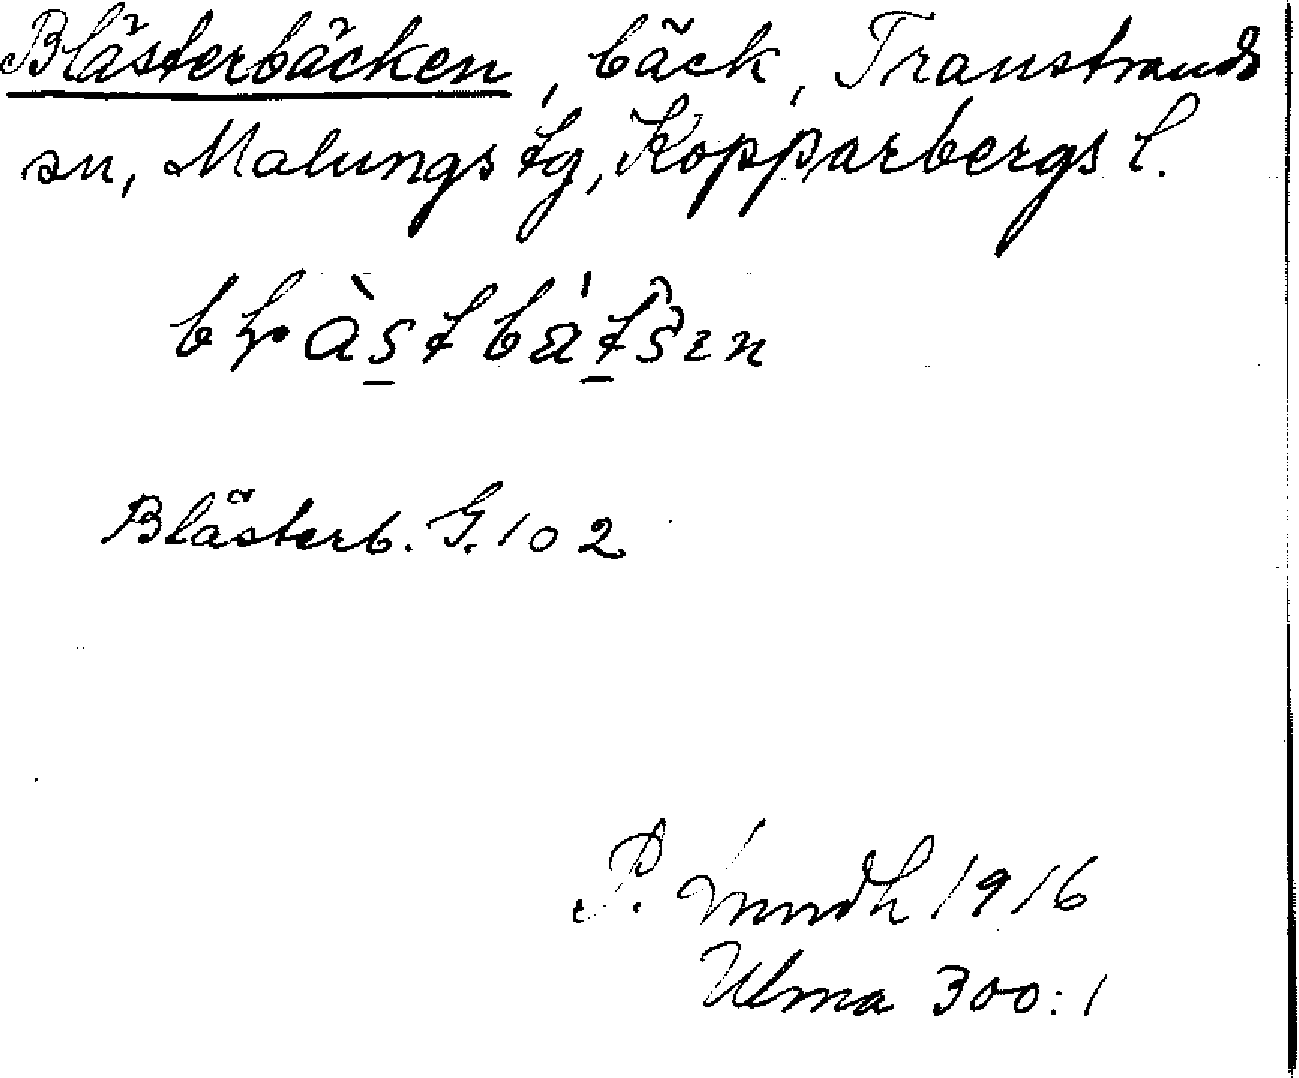 Blästerbäcken, bäck, Transtrands
sn, Malungs tg, Kopparbergs l.
Blästerb. G. 102
P. 1916
Ulma 300:1